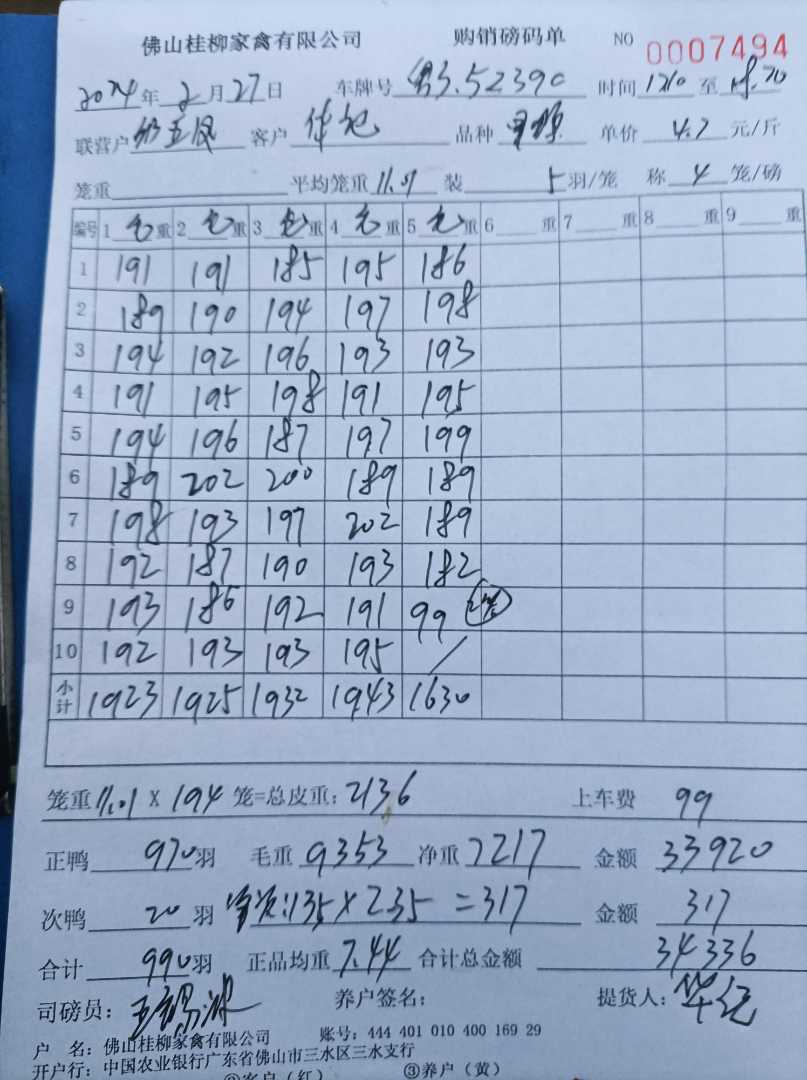 佛山桂柳家禽有限公司 购销磅码单 NO 0007494
2024年2月27日 车牌号 粤J.52390 时间 1210 至
联营户 客户 华记 品种 单价 4.7 元/斤
笼重 平均笼重 11.01 装 5 羽/笼 称 4 笼/磅
编号 1 毛重 2 毛重 3 毛重 4 毛重 5 毛重 6 重 7 重 8 重 9 重
1 191 191 185 195 186
2 189 190 194 197 198
3 194 192 196 193 193
4 191 195 198 191 195
5 194 196 187 197 199
6 189 202 200 189 189
7 198 193 197 202 189
8 192 187 190 193 182
9 193 186 192 191 99 2笼
10 192 193 193 195 /
小计 1923 1925 1932 1943 1630
笼重 11.01 X 194 笼=总皮重: 2136 上车费 99
正鸭 970 羽 毛重 9353 净重 7217 金额 33920
次鸭 20 羽 :135 X 2.35 =317 金额 317
合计 990 羽 正品均重 7.44 合计总金额 34336
司磅员: 养户签名: 提货人: 华记
户 名: 佛山桂柳家禽有限公司 账号: 444 401 010 400 169 29
开户行: 中国农业银行广东省佛山市三水区三水支行
②客户(红) ③养户(黄)